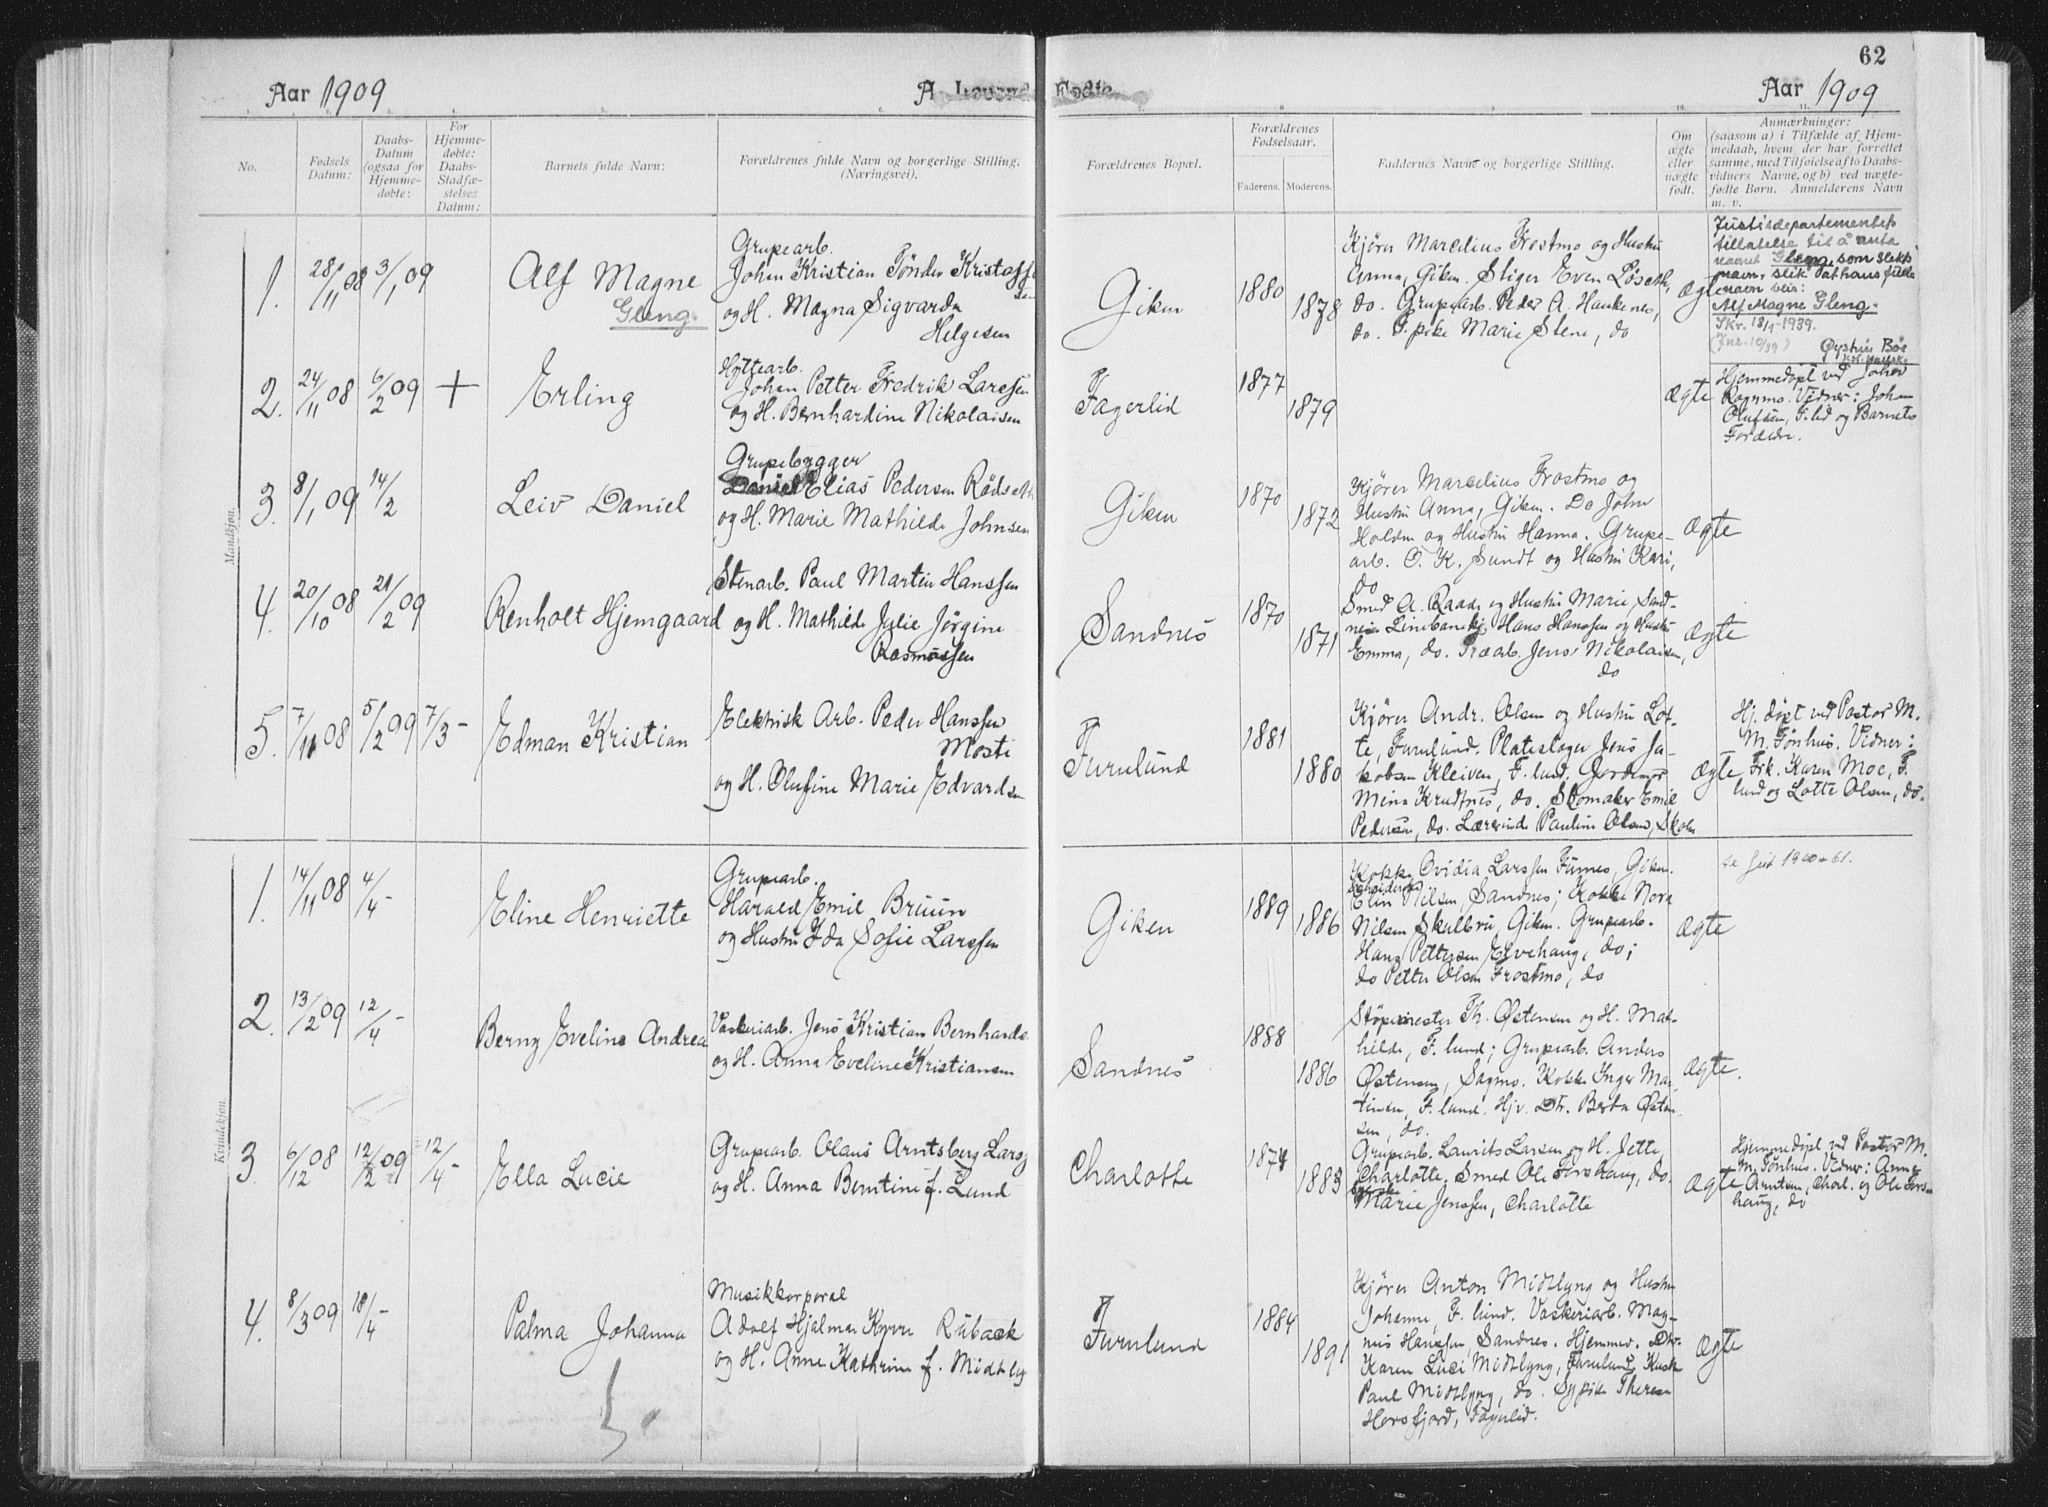 62
Aar 1909
A. Levende Fødte.
Aar 1909
No.
Fødsels Datum:
Daabs-Datum (ogsaa for Hjemme-døbte:
For Hjemme-døbte: Daabs-Stadfæ-stelses Datum:
Barnets fulde Navn:
Forældrenes fulde Navn og borgerlige Stilling.
(Næringsvei).
Forældrenes Bopæl.
Forældrenes Fødselsaar.
Faderens. Moderens.
Faddernes Navne og borgerlige Stilling.
Om ægte eller uægte født.
Anmærkninger:
(saasom a) i Tilfælde af Hjem-
medaab, hvem der har forrettet
samme, med Tilføielse af to Daabs-
vidners Navne, og b) ved uægte-
fødte Børn. Anmelderens Navn
m. v.
Mandkjøn.
1. 28/11 08 3/1 09
Alf Magne
Gleng.
Grupearb.
Johan Kristian Tönder Kristoffer
sen
og H. Magna Sigvarda
Helgesen
Giken
1880
1878
Kjörer Marcelius Frostmo og Hustru
Anna, Giken. Stiger Even Löseth,
do. Grupearb. Peder A. Haukenes,
do. Pike Marie Stene, do
Ægte
Justisdepartementets
tillatelse til å anta
navnet Gleng, som slekts
navn, slik at hans fulle
navn blir:
Alf Magne Gleng.
Skr. 18/1-1939.
(Jnr. 10/39)
Øystein Bøe
2. 24/11 08 6/2 09 +
Erling
Hyttearb.
Johan Petter Fredrik Larssen
og H. Bernhardine Nikolaisen
Fagerlid
1877
1879
Ægte
Hjemmedöpt ved Johan
Rognmo. Vidner: Johan
Olufsen, F. lid og Barnets
Forældre.
3. 8/1 09 14/2
Leiv Daniel
Grupebygger
Daniel Elias Pedersen Rödseth
og H. Marie Mathilde Johnsen
Giken
1870
1872
Kjörer Marcelius Frostmo og
Hustru Anna, Giken. Do John
Holdm og Hustru Hanna. Grupe-
arb. O. K. Sundt og Hustru Kari,
do
Ægte
4. 20/10 08 21/2 09
Renholt Hjemgaard
Stenarb. Paul Martin Hanssen
og H. Mathilde Julie Jörgine
Rasmussen
Sandnes
1870
1871
Smed A. Raade og Hustru Marie, Sand-
nes. Linebanekj. Hans Hanssen og Hustru
Emma, do. Træarb. Jens Nikolaisen,
do
Ægte
5. 7/11 08 5/2 09 7/3 -
Edman Kristian
Elektrisk Arb. Peder Hanssen
Mosti
og H. Olufine Marie Edvardsen
Furulund
1881
1880
Kjörer Andr. Olsen og Hustru Lot-
te, Furulund. Plateslager Jens Ja-
kobsen Kleiven, F. lund. Jordmor
Mina Krudtnes, do. Skomaker Emil
Pedersen, do. Lærerinde Pauline Olsen, Skolen
Ægte
Hj. döpt ved Pastor M.
M. Tönhus. Vidner:
Frk. Karen Moe, F.
lund og Lotte Olsen, do.
Kvindekjøn.
1. 14/11 08 4/4 -
Eline Henriette
Grupearb.
Harald Emil Bruun
og Hustru Ida Sofie Larssen
Giken
1889
1886
Kokke Ovidia Larssen Furnes, Giken.
Elin Nilsen, Sandnes; Kokke Nora
Nilsen Skulbru, Giken. Grupearb.
Hans Pettersen Elvehaug, do;
do Petter Olsen Frostmo, do
Ægte
se Just 1920 - 61.
2. 13/2 09 12/4 -
Berny Eveline Andrea
Vaskeriarb. Jens Kristian Bernhards.
og H. Anna Eveline Kristiansen
Sandnes
1888
1886
Stöpemester Th. Östensen og H. Mat-
hilde, F. lund; Grupearb. Anders
Östensen, Sagmo. Kokke Inger Mar-
tinsen, F. lund. Hjv. Dtr. Berta Östen-
sen, do.
Ægte.
3. 6/12 08 12/2 09 12/4 -
Ella Lucie
Grupearb. Olaus Arntsberg Lars
og H. Anna Berntine f. Lund
Charlotte
1874
1883
Grupearb. Laurits Larsen og H. Jette,
Charlotte. Smed Ole Forshaug, do.
Marie Jenssen, Charlotte
Ægte
Hjemmedöpt ved Pastor M.
M. Tönhus. Vidner: Anne
Arntsen, Charl. og Ole Fors-
haug, do
4. 8/3 09 18/4 -
Palma Johanna
Musikkorporal
Adolf Hjalmar Kyrre Rüback
og H. Anne Kathrine f. Midtlyng
Furulund
1884
1891
Kjörer Anton Midtlyng og Hustru
Johanne, F. lund. Vaskeriarb. Mag-
nus Hanssen, Sandnes. Hjemmev. Dtr.
Karen Luci Midtlyng, Furulund. Kusk
Paul Midtlyng, do. Sypike Therese
Horsfjord, Fagerlid.
Ægte